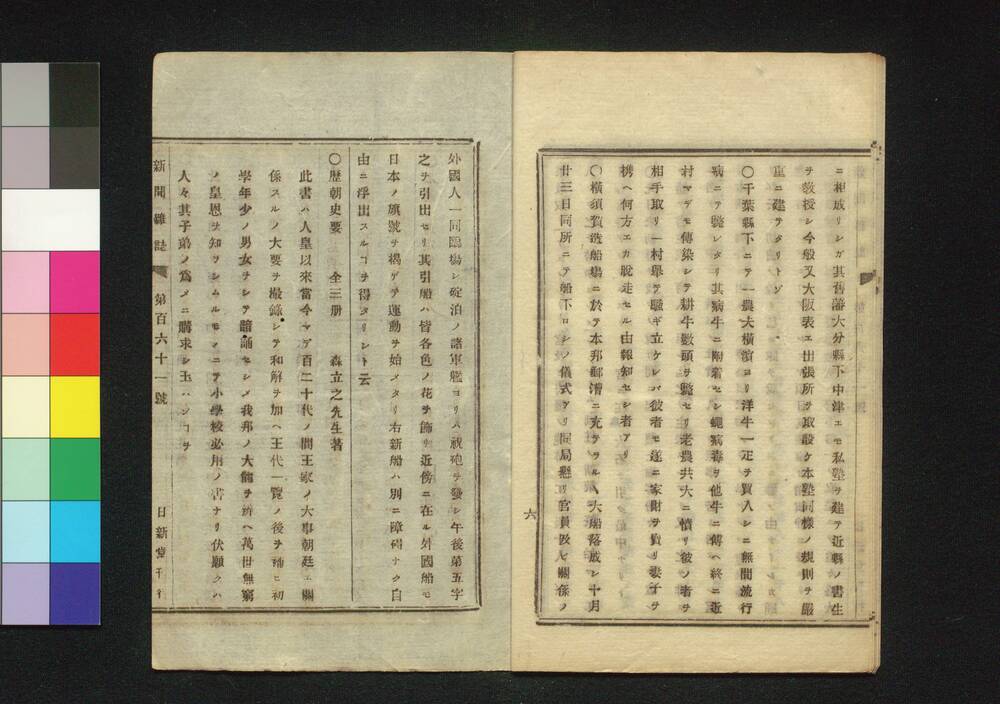 ニ相成リシガ其舊藩大分縣下中津エモ私塾ヲ建テ近縣ノ書生
ヲ敎授シ今般又大阪表エ出張所ヲ取設ケ本塾同樣ノ規則ヲ嚴
重ニ建テタリトゾ
〇千葉縣下ニテ一農夫橫濵ヨリ洋牛一疋ヲ買入シニ無間流行
病ニテ斃レタリ其病牛ニ附着セシ蠅病毒ヲ他牛ニ傳ヘ終ニ近
村マデモ傳染シテ耕牛數頭ヲ斃セリ老農共大ニ憤リ彼ノ者ヲ
相手取リ一村擧テ騷ギ立ケレバ彼者モ遂ニ家財ヲ賣リ妻子ヲ
携ヘ何方エカ脫走セル由報知セシ者アリ
〇橫須賀造船場ニ於テ本邦郵漕ニ充テラルヽ大船落成シ十月
廿三日同所ニテ船下ロシノ儀式アリ同局懸リ官員及ヒ關係ノ
六
外國人一同臨場シ碇泊ノ諸軍艦ヨリハ祝砲ヲ發シ午後第五字
之ヲ引出セリ其引船ハ皆各色ノ花ヲ飾リ近傍ニ在ル外國船モ
日本ノ旗號ヲ揭ゲテ運動ヲ始メタリ右新船ハ別ニ障碍ナク自
由ニ浮出スルヿヲ得タリシト云
〇歷朝史要　全三册　森立之先生著
此書ハ人皇以來當今マデ百二十代ノ間王家ノ大事朝廷ニ關
係スルノ大要ヲ撮錄シテ和解ヲ加ヘ王代一覽ノ後ヲ補ヒ初
學年少ノ男女ヲシテ諳誦セシメ我邦ノ大體ヲ辨ヘ萬世無窮
ノ皇恩ヲ知ラシムルモノニテ小學校必用ノ書ナリ伏願クハ
人々其子弟ノ爲メニ購求シ玉ハンヿヲ
新聞雜誌　第百六十一號　日新堂千行